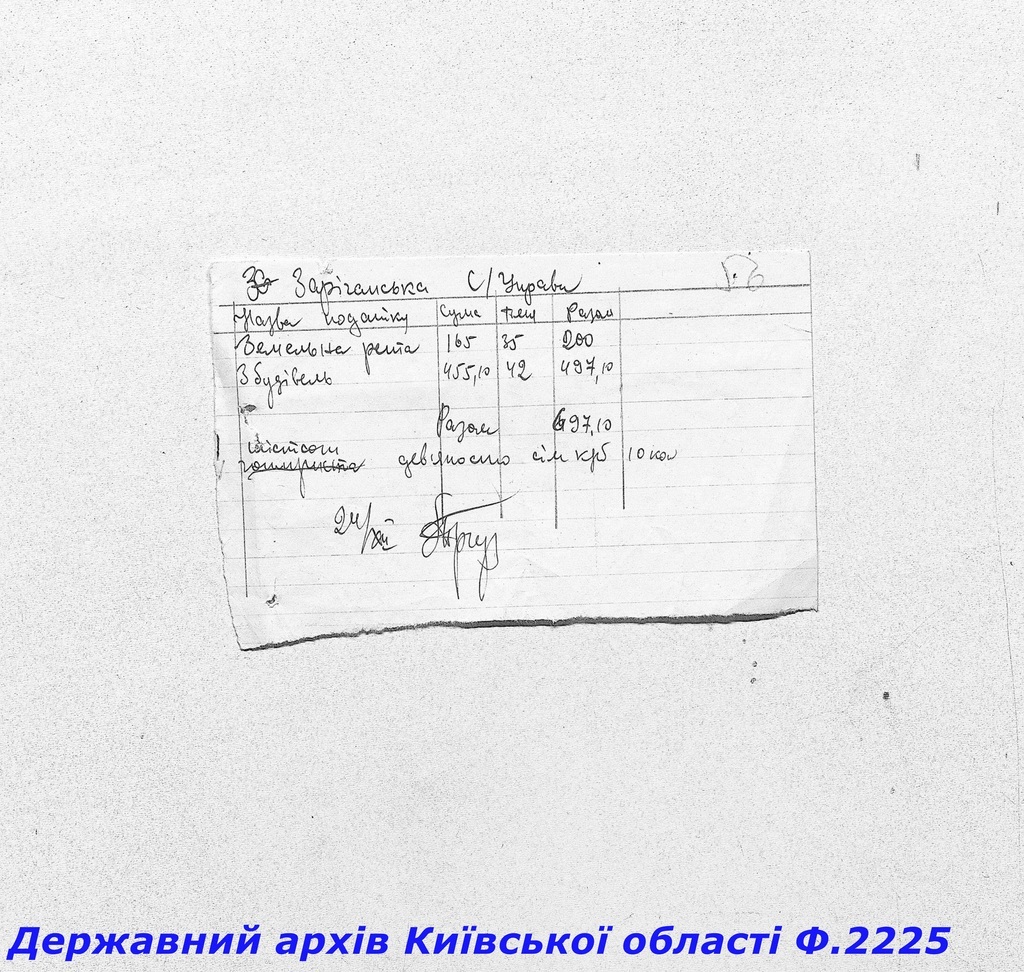 Зарічанська С/Управа
Назва податку Сума Пені Разом
Земельна рента 165 35 200
З будівель 455,10 42 497,10
Разом 697,10
шістсот
чотириста девяносто сім крб 10 коп
24/XII
Державний архів Київської області Ф.2225